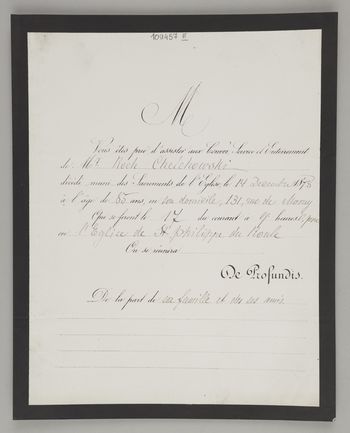 100457 II
M
Vous êtes prié d'assister aux Convoi, Service et Enterrement
de Mr. Roch
décédé, muni des Sacrements de l'Eglise, le 14 Décembre 1878
à l'âge de ans, en son domicile, 131, rue de
Qui se feront le 17 du courant à 9 heures
en l'Eglise de St philippe du Roule
On se réunira
De Profundis.
De la part de sa famille et de ses amis.